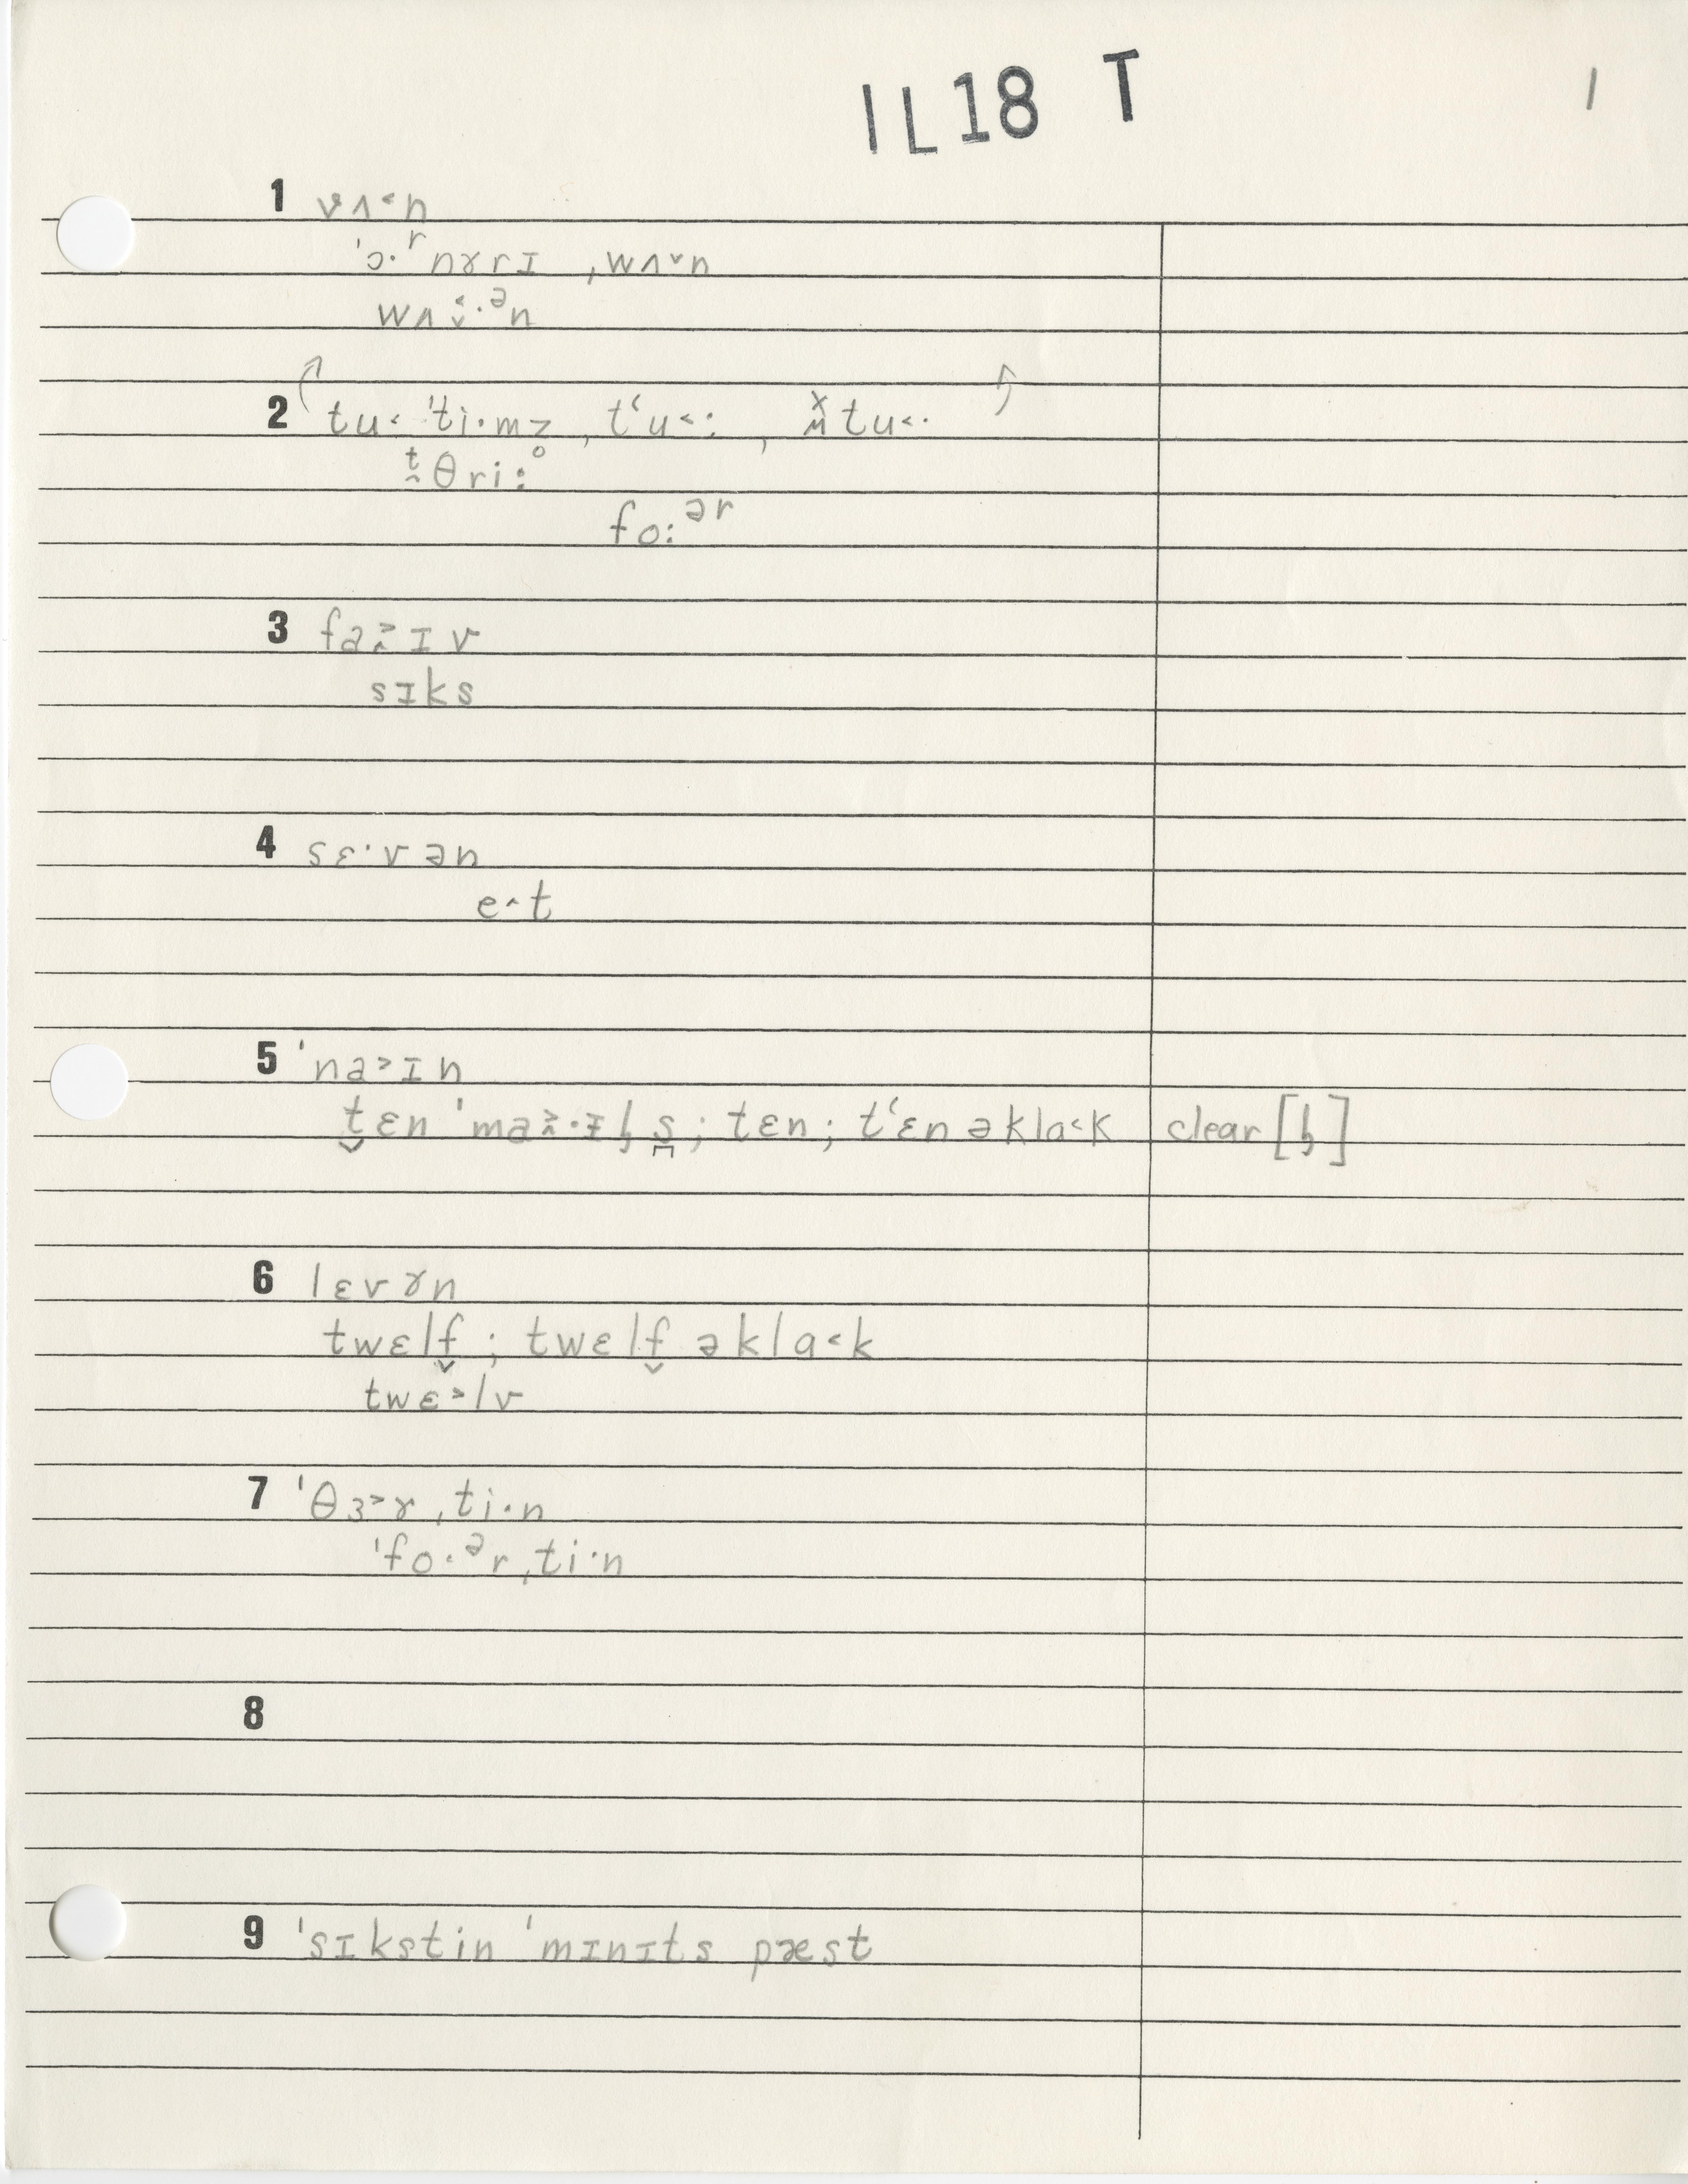 IL18 T 1
1 vʌ˂n
ˈɔ·ʳnɤrɪ ˌwʌ˅n
wʌ˂̬·ᵊn
2 tu˂ ˈti·mz̥ , tʻu˂: , tu˂·
θri:
fo:ᵊʳ
3 fa˃̭ɪv
sɪks
4 sɛ·vən
e˄t
5 ˈna˃ɪn
t̬ɛn ˈma˃̭·ɪl̡s̪ ; tɛn ; tʻɛn əkla˂k clear [l̡]
6 lɛvɤn
twɛlf̬ ; twɛlf̬ əklɑ˂k
twɛ˃lv
7 ˈθɜ˃ɤˌti·n
ˈfo·ᵊrˌti·n
8
9 ˈsɪkstin ˈmɪnɪts pæst